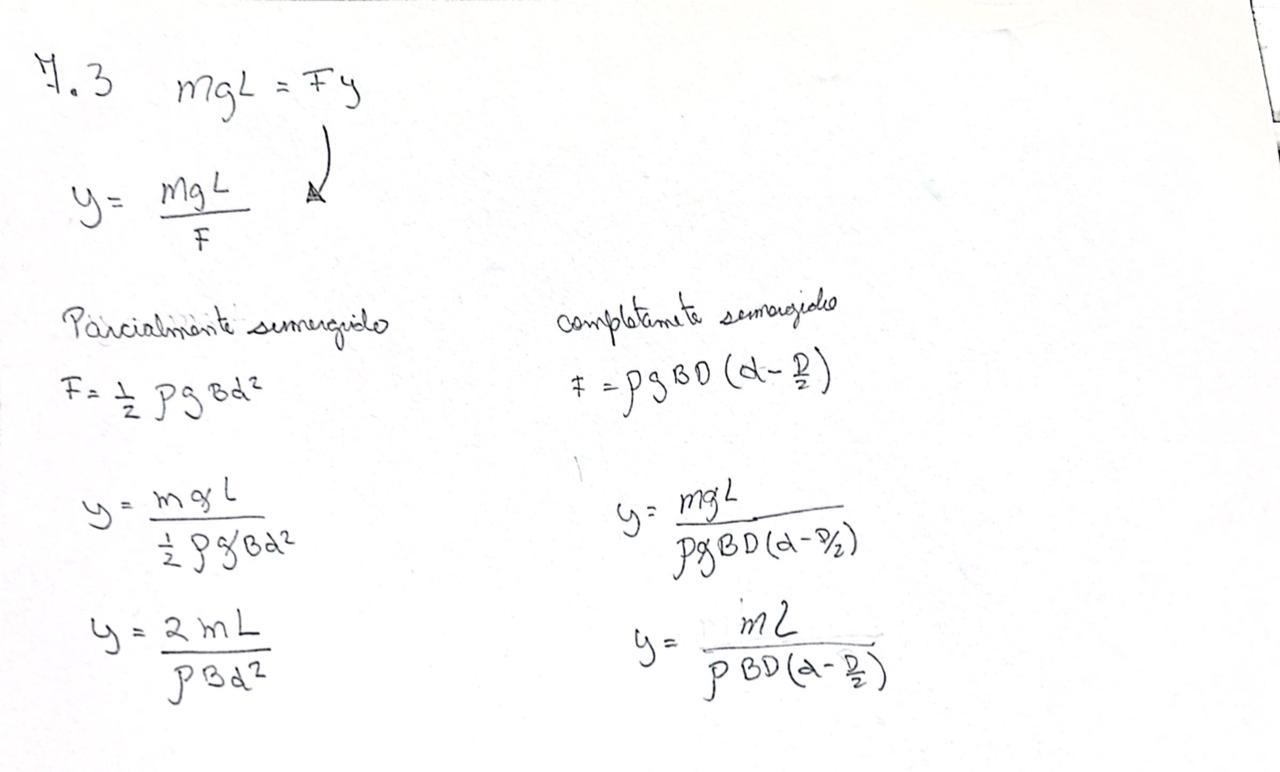 7.3 mgL = Fy
y = mgL / F
Parcialmente sumergido
F = 1/2 ρgBd²
y = mgL / (1/2 ρgBd²)
y = 2mL / (ρBd²)
completamete sumergido
F = ρgBD(d - D/2)
y = mgL / (ρgBD(d - D/2))
y = mL / (ρBD(d - D/2))